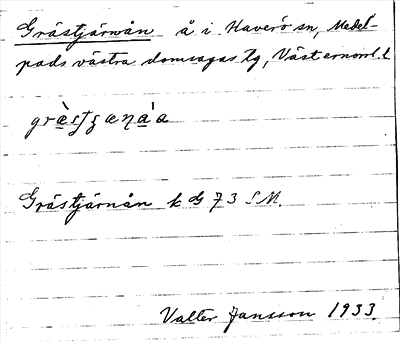 Grästjärnån å i Haverö sn, Medel-
pads västra domsagas tg, Västernorrl. l.
Grästjärnån k G 73 S.M.
Valter Jansson 1933.